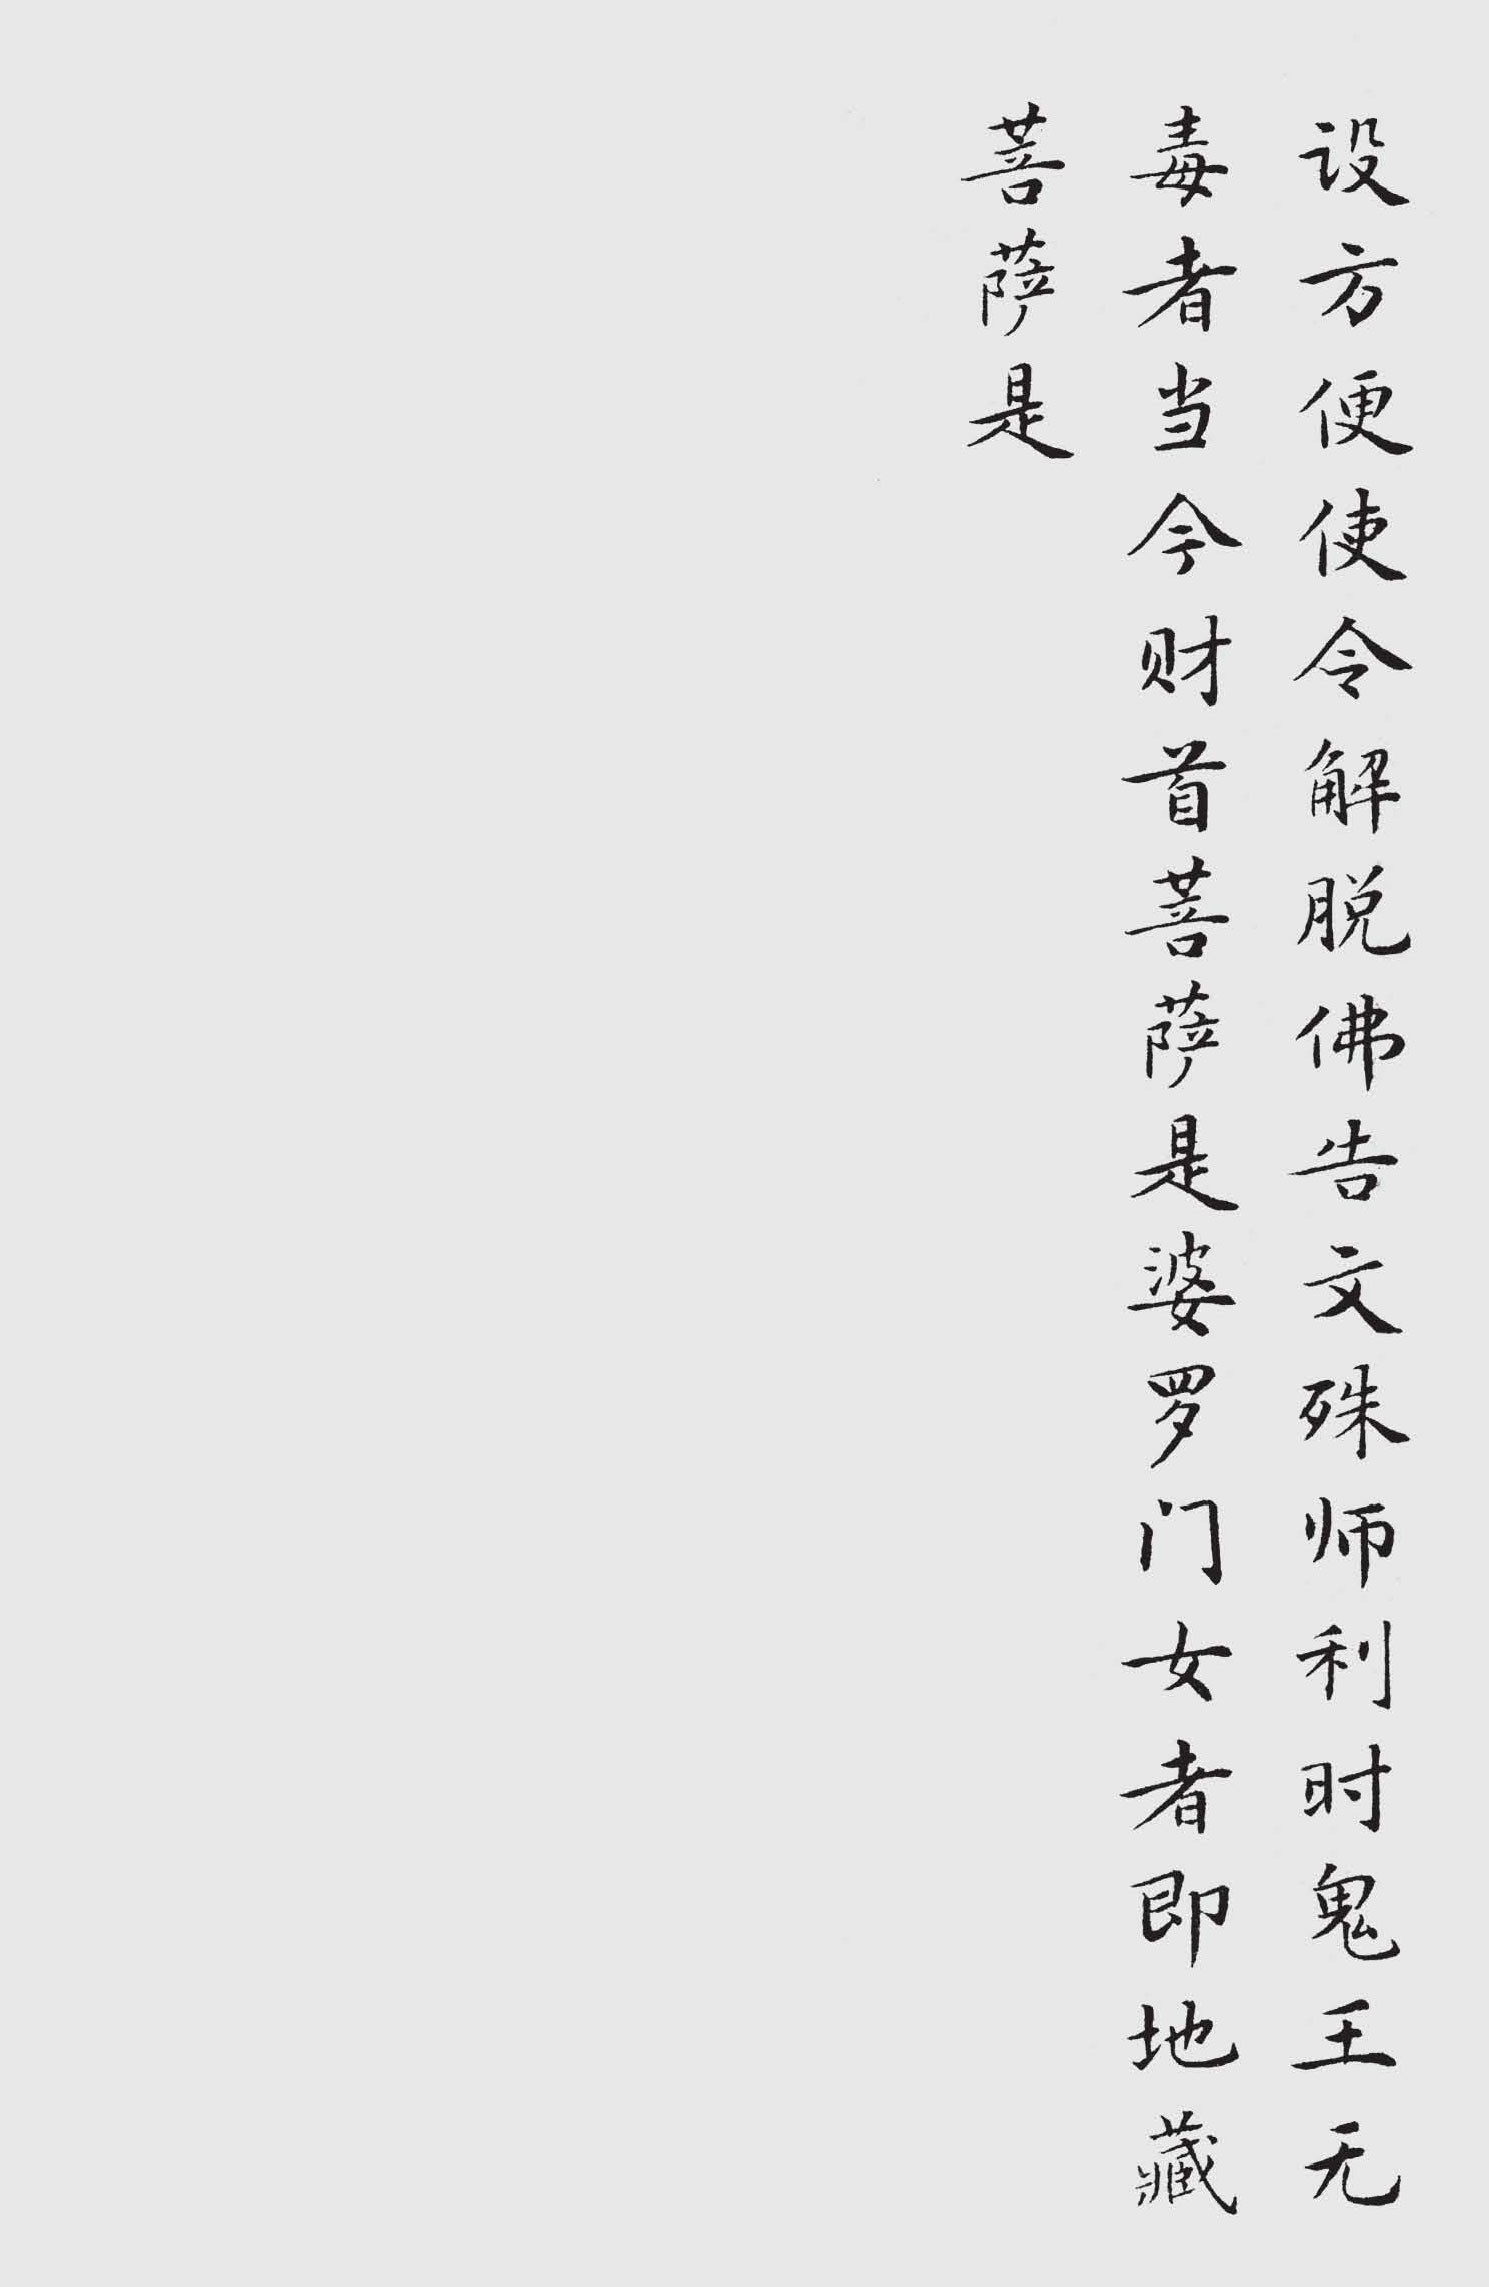 设方便使令解脱佛告文殊师利时鬼王无
毒者当今财首菩萨是婆罗门女者即地藏
菩萨是